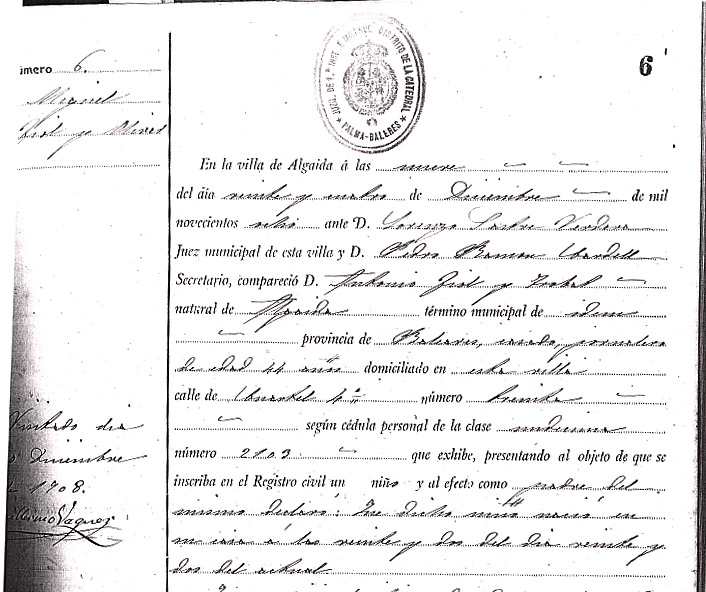 Número 6.
Miguel
Fiol y Oliver
6
JUZG. DE 1.ª INST. E INSTRUC. DISTRITO DE LA CATEDRAL
★ PALMA-BALERES ★
En la villa de Algaida á las nueve
del dia veinte y cuatro de Diciembre de mil
novecientos ocho ante D. Lorenzo Sastre Verdera
Juez municipal de esta villa y D. Pedro Ramon
Secretario, compareció D. Antonio Fiol y
natural de Algaida término municipal de idem
provincia de Baleares, casado, jornalero
de edad 44 años domiciliado en esta villa
calle de Cuartel 4º número treinta
según cédula personal de la clase undécima
número 2102 que exhibe, presentando al objeto de que se
inscriba en el Registro civil un niño y al efecto como padre del
mismo declaró: Que dicho niño nació en
su casa á las veinte y dos del dia veinte y
dos del actual
dia
Diciembre
1908.
Vaquer